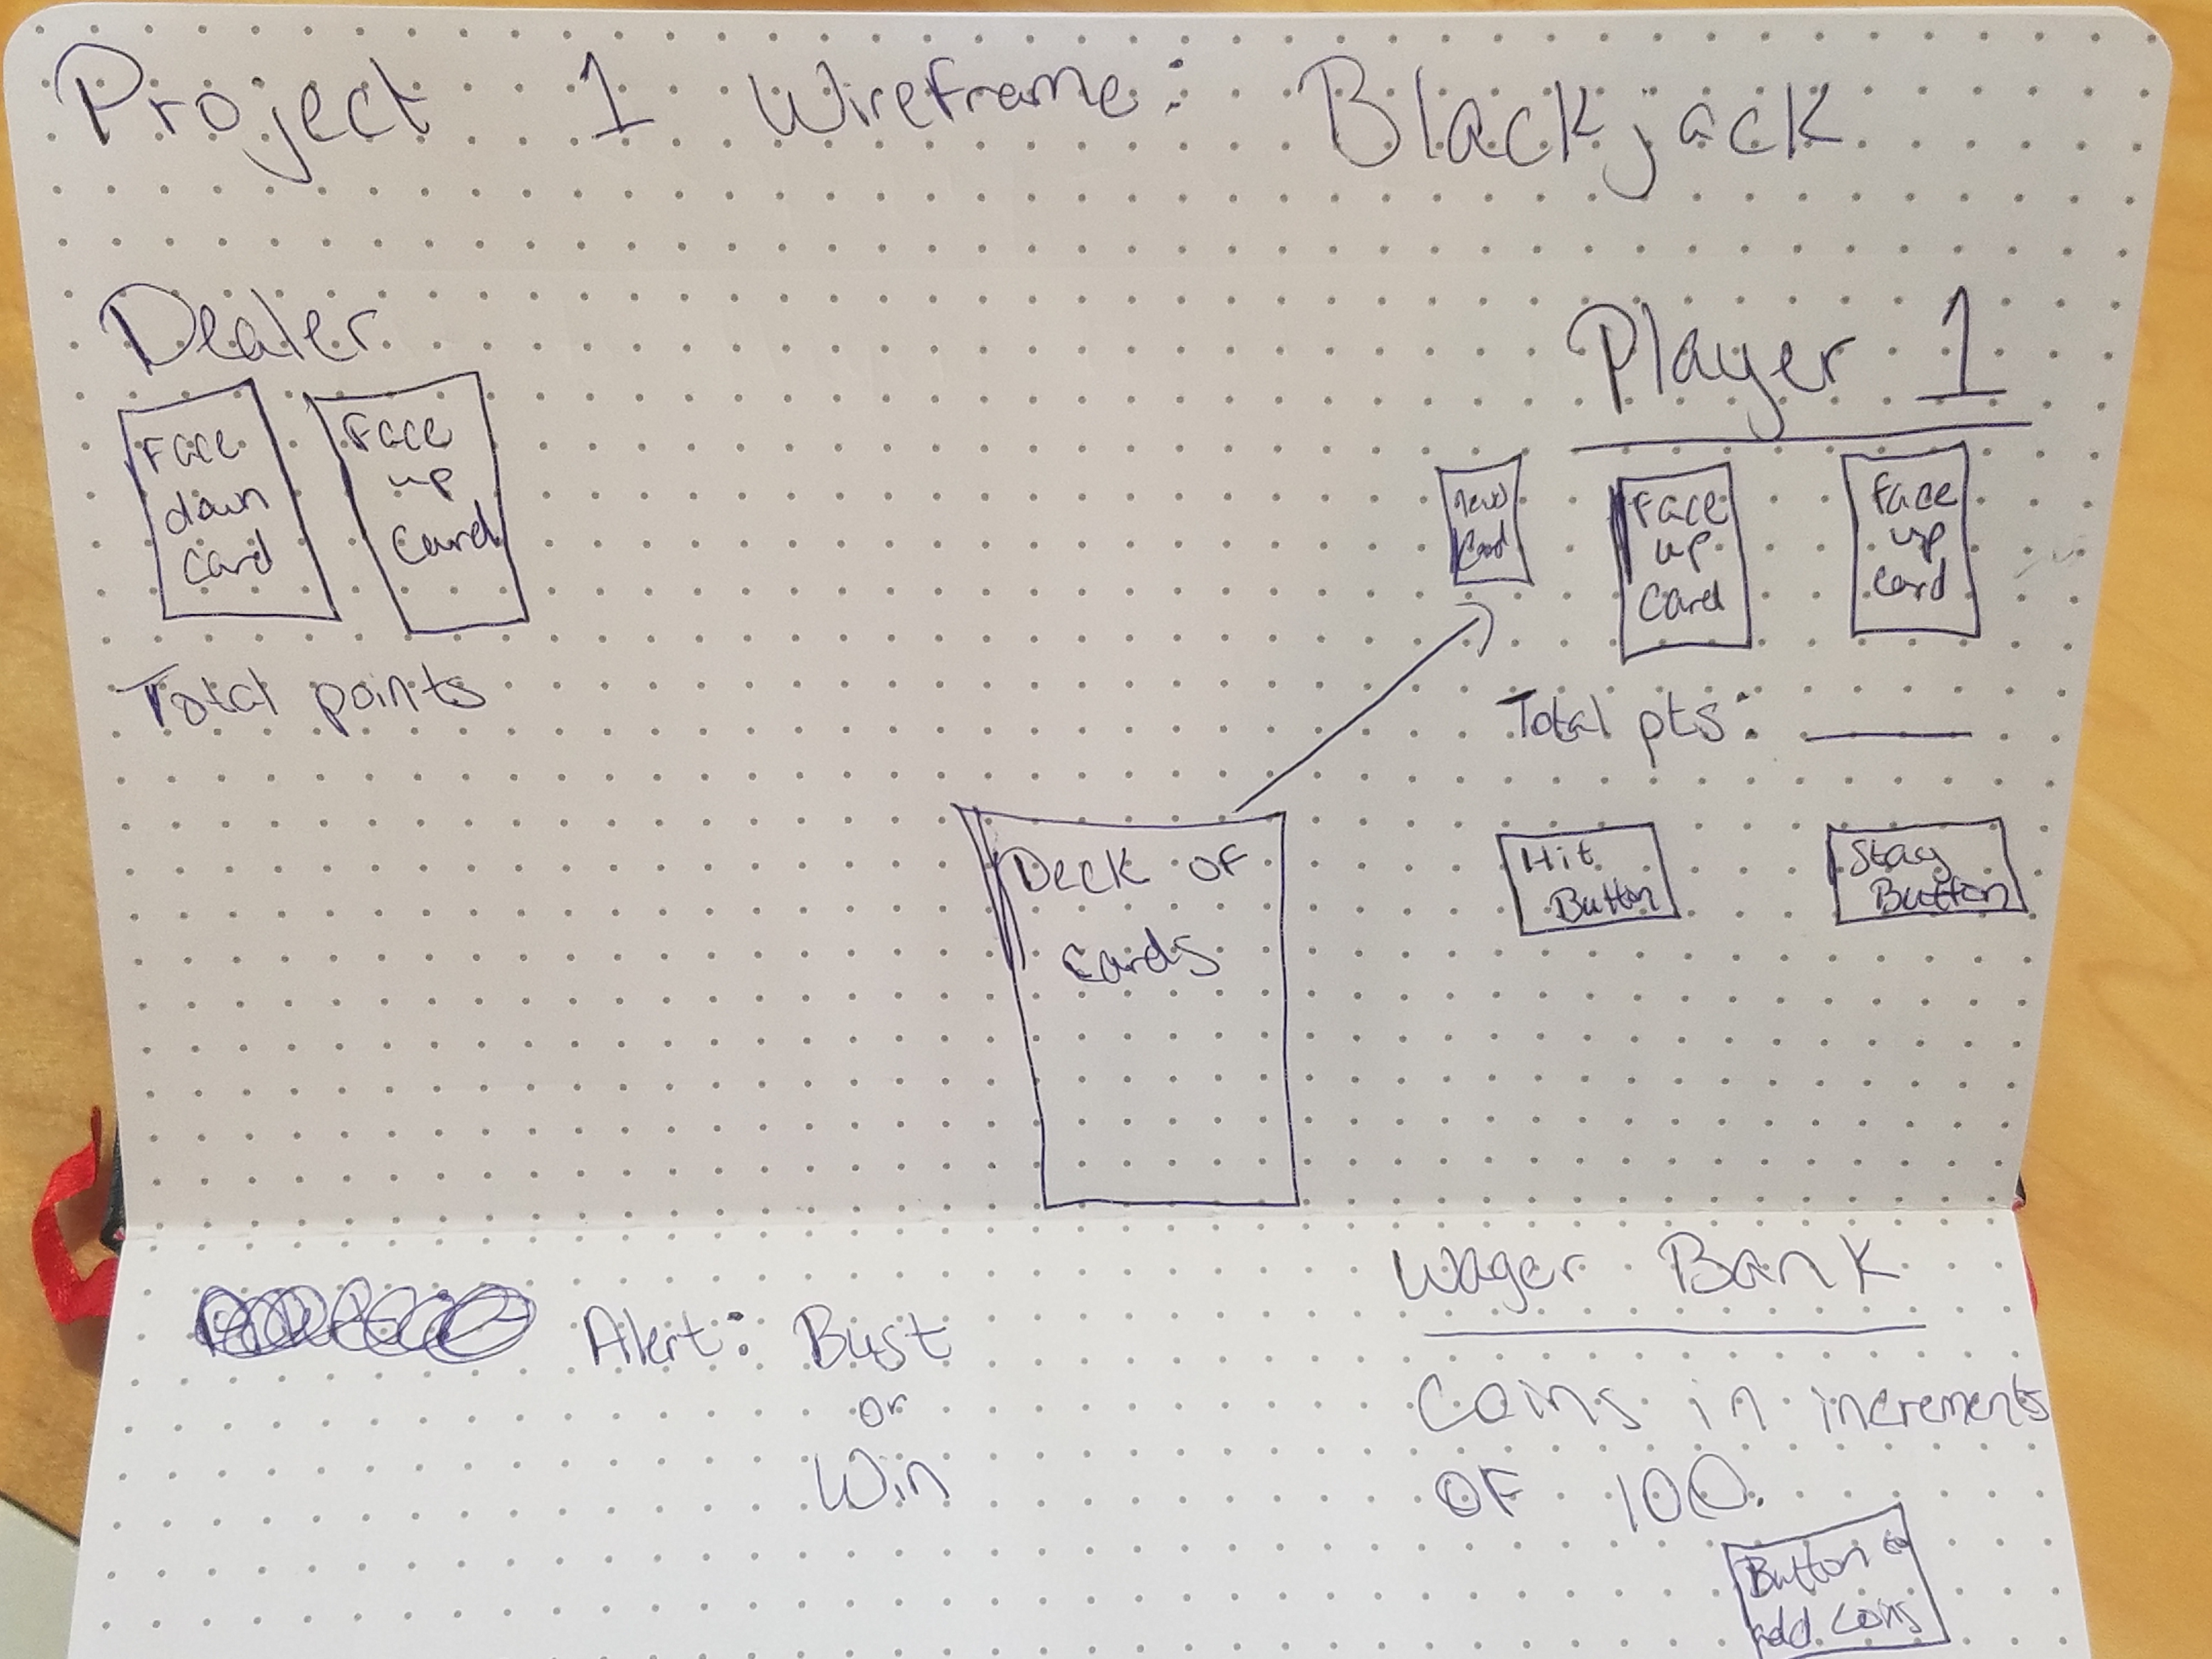 Project 1 Wireframe: Blackjack
Dealer
Face
down
Card
Face
up
Card
Total points
Player 1
New
Card
Face
up
Card
Face
up
Card
Total pts:
Hit
Button
Stay
Button
Deck of
cards
Alert: Bust
or
Win
Wager Bank
Coins in increments
of 100.
Button to
add coins